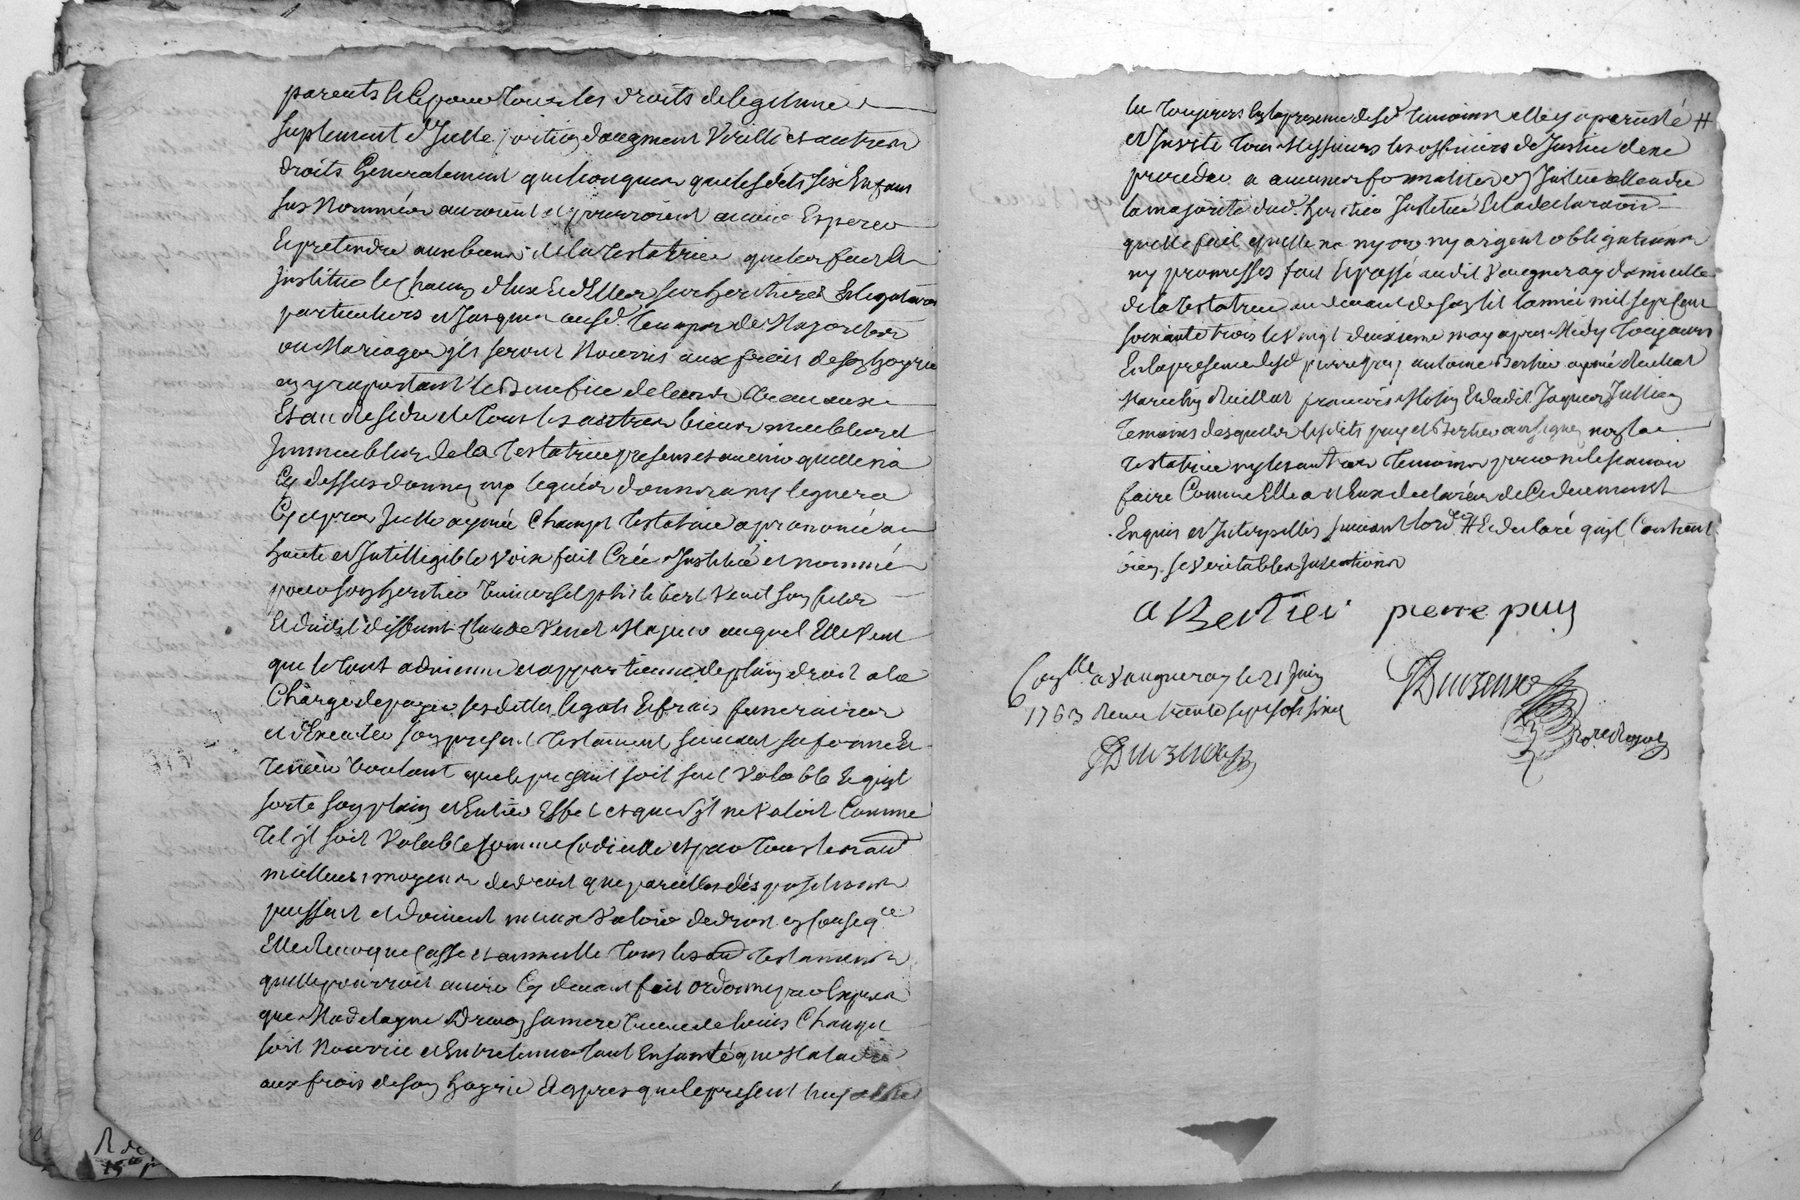 parents le tout pour tous les droits de legitime
suplement d'Icelle portion d'augment Virille et autres
droits Generalement quelconques que lesdits six Enfans
sus Nommés auroient et pourroient avoir Esperer
Et pretendre aux biens de la testatrice, que leur fait &
Institue le chacun d'Eux Et d'Elles ses heritieres Et legataires
particuliers et Jusques ausd. temps de Majorites
ou Mariages jls seront Nourris aux frais de son hoyrie
en y raportant le Benefice de leurs travaux
Et au Residu de tous les autres biens meubles et
Immeubles de la Testatrice presens et avenir quelle n'a
Cy dessus donné ny legués donnera ny leguera
Cy apres Jcelle aymée Champt testatrice a prononcé a
haute et Intelligible voix fait Créé Institué et nommé
pour son heritier Universel philibert Venet son fils
Et dudit deffunt Claude Venet Majeur auquel Elle veut
que le tout advienne et appartienne de plein droit a la
Charge de payer ses dettes legats Et frais funeraires
et d'Executer son present testament suivant sa forme Et
teneur voulant que le present soit seul valable Et quil
sorte son plein et Entier Effet et que s'jl ne valoit Comme
tel jl soit valable Comme Codicille et par tous les aud
meilleurs moyens de droit que pareilles dispositions
puissent et doivent mieux valoir de droit en Conseqce
Elle Revoque Casse et annulle tous les aud testaments
quelle pourroit avoir Cy devant fait ordonne par Expres
que Madelayne sa mere veuve de Louis Champt
soit Nourrie et Entretenue tant En santé que Maladie
aux frais de son hoyrie Et apres que le present luy a Eté
lu toujours En la presence desd temoins elle y a persisté #
et Invite tous Messieurs les officiers de Justice de ne
proceder a aucunes formalites de Justice attendu
la majorité dud. heritier Institué Et la declaration
quelle fait quelle na ny or ny argent obligations
ny promesses fait Et passé audit Vaugneray domicille
de la testatrice au devant de son lit l'année mil sept Cent
soixante trois le vingt deuxieme may apres Midy toujours
En la presence desd pierre puy antoine Bertier aymé Ruillat
Ruillat francois Et dudit Jaques Jullien
temoins desquels lesdits puy et Bertier ont signé non la
testatrice ny les autres temoins pour ne le scavoir
faire Comme Elle a et Eux declarés de Ce duement
Enquis et Interpellés suivant lord. # Et declaré quil Contient
bien ses veritables Intentions
a Bertier pierre puy
Conlle a Vaugneray le 21 Juin
1763 Receu trente sept sols six d